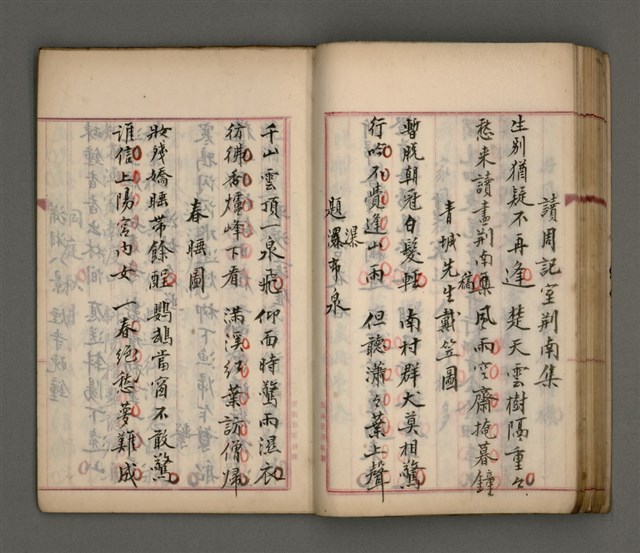 讀周記室荆南集
生別猶疑不再逢 楚天雲樹隔重々
愁来讀盡荆南集 風雨空齋掩暮鐘
稿
青城先生戴笠圖
暫脱朝冠白髮輕 南村群犬莫相驚
行吟不覺逢山雨 但聽瀟々葉上聲
題瀑布泉
瀑
千山雲頂一泉飛 仰面時驚雨濕衣
彷彿香爐峰下看 滿溪紅葉訪僧歸
春睡圖
妝殘嬌睡帶餘酲 鸚鵡當窗不敢驚
誰信上陽宮内女 一春絕愁夢難成